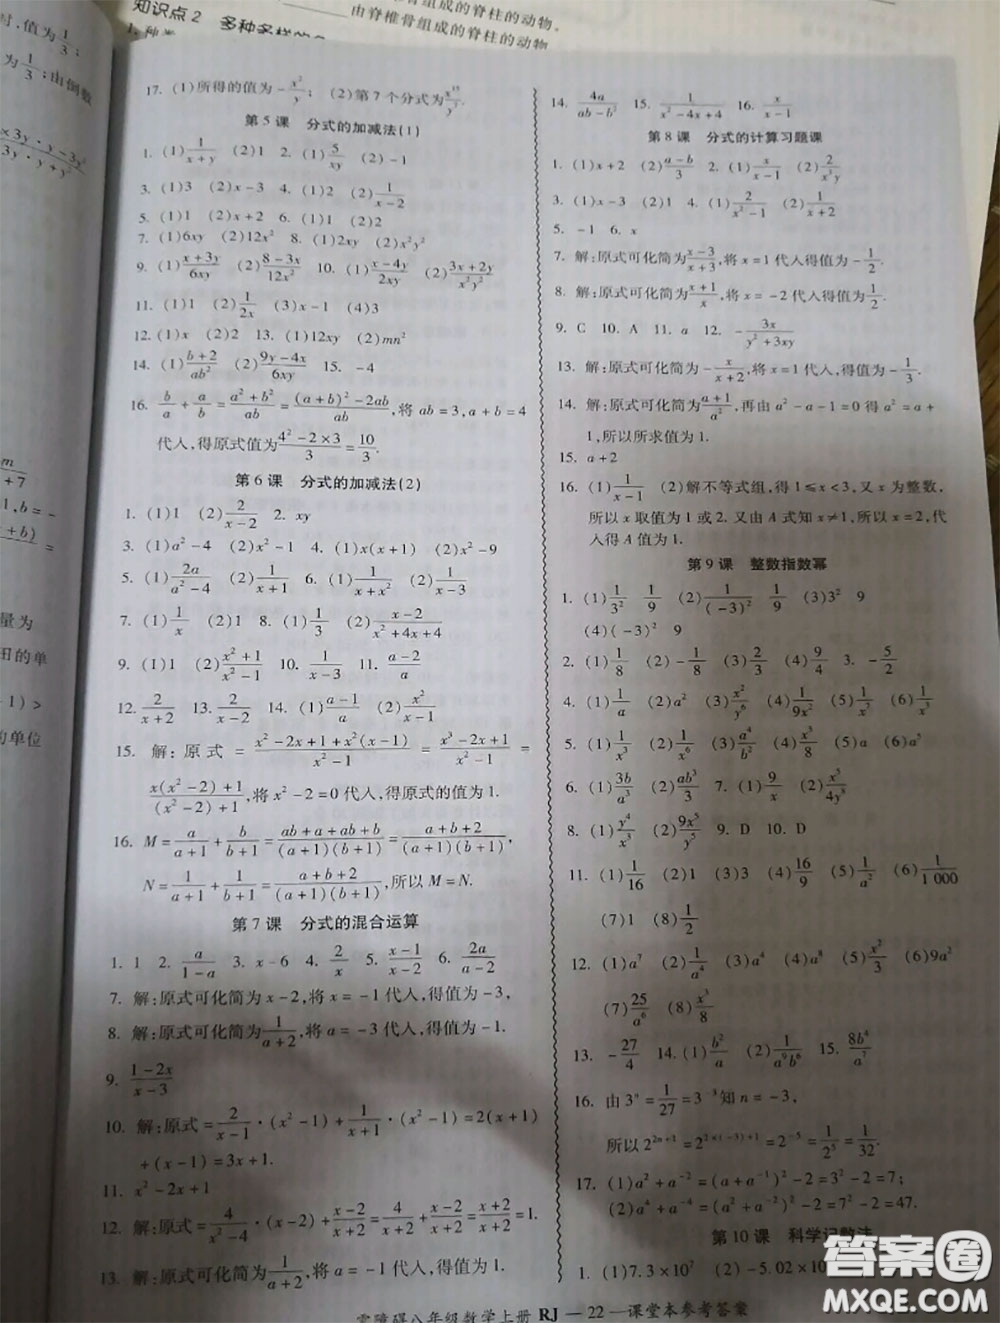 时,值为1/3;
为1/3;由倒数
量为
田的单
的单位
知识点2
由脊椎骨组成的脊柱的动物.
17. (1)所得的值为-x²/y; (2)第7个分式为x¹⁵/y⁷.
第5课 分式的加减法(1)
1. (1)1/(x+y) (2)1 2. (1)5/(xy) (2)-1
3. (1)3 (2)x-3 4. (1)1 (2)1/(x-2)
5. (1)1 (2)x+2 6. (1)1 (2)2
7. (1)6xy (2)12x² 8. (1)2xy (2)x²y²
9. (1)(x+3y)/(6xy) (2)(8-3x)/(12x²) 10. (1)(x-4y)/(2xy) (2)(3x+2y)/(x²y²)
11. (1)1 (2)1/(2x) (3)x-1 (4)3
12. (1)x (2)2 13. (1)12xy (2)mn²
14. (1)(b+2)/(ab²) (2)(9y-4x)/(6xy) 15. -4
16. b/a+a/b=(a²+b²)/(ab)=((a+b)²-2ab)/(ab),将ab=3,a+b=4
代入,得原式值为(4²-2×3)/3=10/3.
第6课 分式的加减法(2)
1. (1)1 (2)2/(x-2) 2. xy
3. (1)a²-4 (2)x²-1 4. (1)x(x+1) (2)x²-9
5. (1)2a/(a²-4) (2)1/(x+1) 6. (1)1/x (2)1/(x-3)
7. (1)1/x (2)1 8. (1)1/3 (2)(x-2)/(x²+4x+4)
9. (1)1 (2)(x²+1)/(x²-1) 10. 1/(x-3) 11. (a-2)/a
12. 2/(x+2) 13. 2/(x-2) 14. (1)(a-1)/a (2)x²/(x-1)
15. 解:原式=(x²-2x+1+x²(x-1))/(x²-1)=(x³-2x+1)/(x²-1)=
(x(x²-2)+1)/((x²-2)+1),将x²-2=0代入,得原式的值为1.
16. M=a/(a+1)+b/(b+1)=(ab+a+ab+b)/((a+1)(b+1))=(a+b+2)/((a+1)(b+1)),
N=1/(a+1)+1/(b+1)=(a+b+2)/((a+1)(b+1)),所以M=N.
第7课 分式的混合运算
1. 1 2. a/(1-a) 3. x-6 4. 2/x 5. (x-1)/(x-2) 6. 2a/(a-2)
7. 解:原式可化简为x-2,将x=-1代入,得值为-3,
8. 解:原式可化简为1/(a+2),将a=-3代入,得值为-1.
9. (1-2x)/(x-3)
10. 解:原式=2/(x-1)·(x²-1)+1/(x+1)·(x²-1)=2(x+1)
+(x-1)=3x+1.
11. x²-2x+2
12. 解:原式=4/(x²-4)·(x-2)+(x-2)/(x+2)=4/(x+2)+(x-2)/(x+2)=(x+2)/(x+2)=1.
13. 解:原式可化简为1/(a+2),将a=-1代入,得值为1.
14. 4a/(ab-b²) 15. 1/(x²-4x+4) 16. x/(x-1)
第8课 分式的计算习题课
1. (1)x+2 (2)(a-b)/3 2. (1)x/(x-1) (2)2/(x³y)
3. (1)x-3 (2)1 4. (1)2/(x²-1) (2)1/(x+2)
5. -1 6. x
7. 解:原式可化简为(x-3)/(x+3),将x=1代入得值为-1/2.
8. 解:原式可化简为(x+1)/x,将x=-2代入得值为1/2.
9. C 10. A 11. a 12. -3x/(y²+3xy)
13. 解:原式可化简为-x/(x+2),将x=1代入,得值为-1/3.
14. 解:原式可化简为(a+1)/a²,再由a²-a-1=0得a²=a+
1,所以所求值为1.
15. a+2
16. (1)1/(x-1) (2)解不等式组,得1≤x<3,又x为整数,
所以x取值为1或2.又由A式知x≠1,所以x=2,代
入得A值为1.
第9课 整数指数幂
1. (1)1/3² 1/9 (2)1/(-3)² 1/9 (3)3² 9
(4)(-3)² 9
2. (1)1/8 (2)-1/8 (3)2/3 (4)9/4 3. -5/2
4. (1)1/a (2)a² (3)x²/y⁶ (4)1/(9x²) (5)1/x (6)a
5. (1)1/x³ (2)1/x⁶ (3)a⁴/b² (4)x²/y²
6. (1)3b/a³ (2)ab³/3 7. (1)9/x (2)x²/(4y³)
8. (1)y⁴/x³ (2)9x⁵/y⁵ 9. D 10. D
11. (1)1/16 (2)1 (3)1 (4)16/9 (5)1/a² (6)1/1 000
(7)1 (8)1/2
12. (1)a⁷ (2)1/a⁴ (3)a⁴ (4)a⁸ (5)x²/3 (6)9a²
(7)25/a⁶ (8)x³/8
13. -27/4 14. (1)b²/a (2)1/(a⁹b⁶) 15. 8b⁴/a⁷
16. 由3ⁿ=1/27=3⁻³知n=-3,
所以2²ⁿ⁺¹=2²ˣ⁽⁻³⁾⁺¹=2⁻⁵=1/2⁵=1/32.
17. (1)a²+a⁻²=(a+a⁻¹)²-2=3²-2=7;
(2)a⁴+a⁻⁴=(a²+a⁻²)²-2=7²-2=47.
第10课 科学记数法
1. (1)7.3×10⁷ (2)-5.02×10
零障碍八年级数学上册 RJ —22—课堂本参考答案
答案圈
MXQE.COM